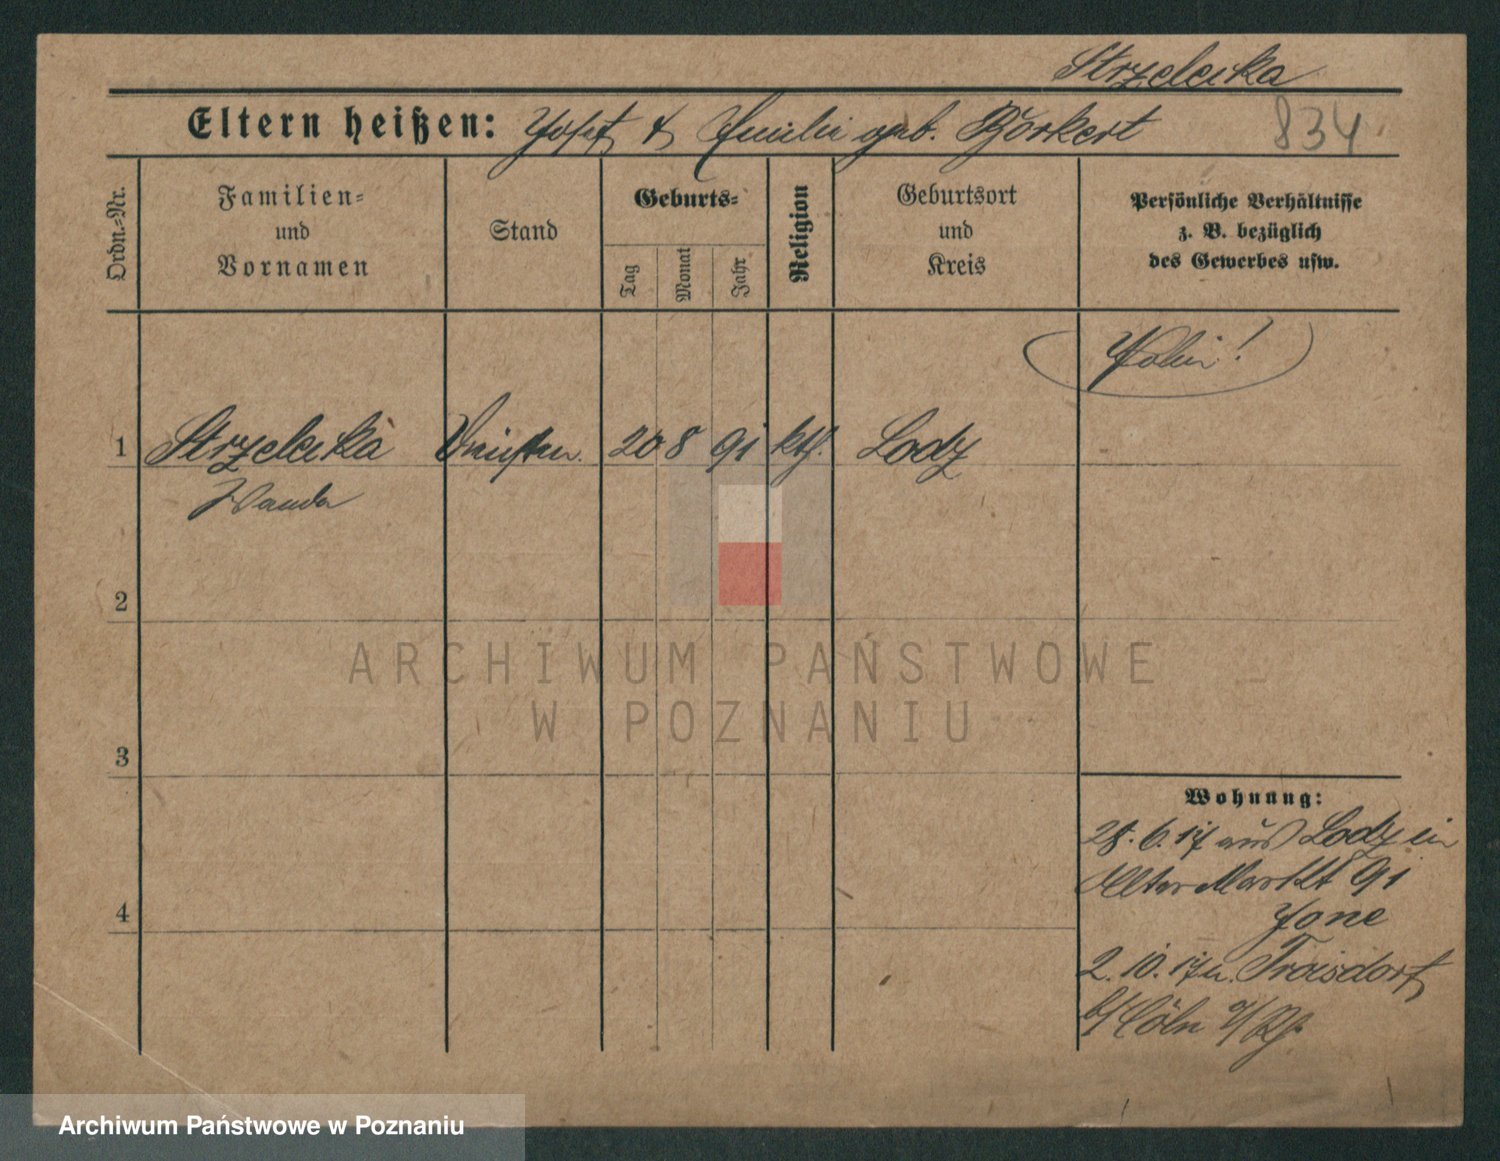 Strzelecka
Eltern heißen: Josef & Emilie geb. Borkert
834
Ordn.-Nr.
Familien- und Vornamen
Stand
Geburts-
Tag
Monat
Jahr
Religion
Geburtsort und Kreis
Persönliche Verhältnisse
z. B. bezüglich
des Gewerbes usw.
Polin!
1 Strzelecka 20 8 91 kth. Lodz
Wanda
2
ARCHIWUM PAŃSTWOWE
W POZNANIU
3
Wohnung:
28.6.17 aus Lodz in
Alter Markt 91
2.10.17 n. Troisdorf
b/ Cöln a/Rh.
4
Archiwum Państwowe w Poznaniu